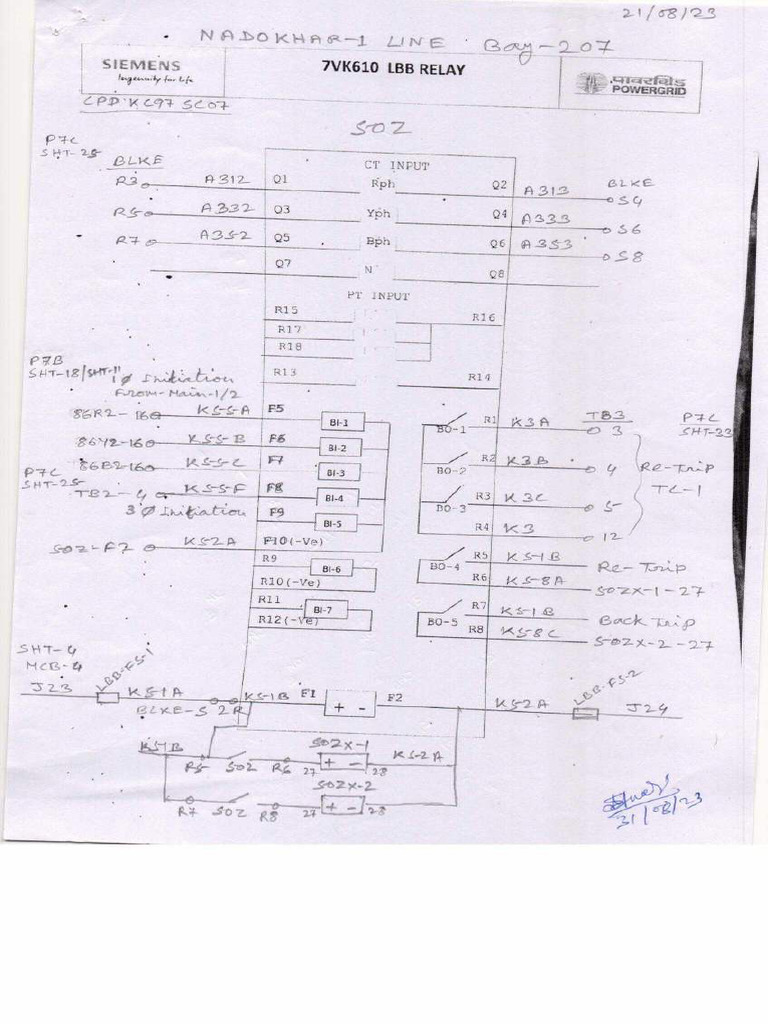 21/08/23
NADOKHAR-1 LINE Bay-207
SIEMENS
Ingenuity for Life
7VK610 LBB RELAY
पावरग्रिड
POWERGRID
CPD: KC97 SC07
50Z
P7C
SHT-25
BLKE
CT INPUT
R3 A312 Q1 Rph Q2 A313 BLKE S4
R5 A332 Q3 Yph Q4 A333 S6
R7 A352 Q5 Bph Q6 A353 S8
Q7 N Q8
PT INPUT
R15 R16
R17
R18
R13 R14
P7B
SHT-18/SHT-11
1Ø Initiation
From-Main-1/2
86R2-16 K55-A F5 BI-1 BO-1 R1 K3A TB3 3 P7C SHT-33
86Y2-16 K55-B F6 BI-2 BO-2 R2 K3B 4 Re-Trip
86B2-16 K55-C F7 BI-3 TC-1
P7C
SHT-25
TB2-4 K55-F F8 BI-4 BO-3 R3 K3C 5
3Ø Initiation F9 BI-5 R4 K3 12
50Z-F7 K52A F10(-Ve)
R9 BI-6 BO-4 R5 K51B Re-Trip
R10(-Ve) R6 K58A 50ZX-1-27
R11 BI-7 BO-5 R7 K51B Back Trip
R12(-Ve) R8 K58C 50ZX-2-27
SHT-4
MCB-4
J23 LBB-FS-1 K51A BLKE-5 2R K51B F1 + - F2 K52A LBB-FS-2 J24
K51B R5 50Z R6 27 50ZX-1 + - 28 K52A
R7 50Z R8 27 50ZX-2 + - 28
31/08/23